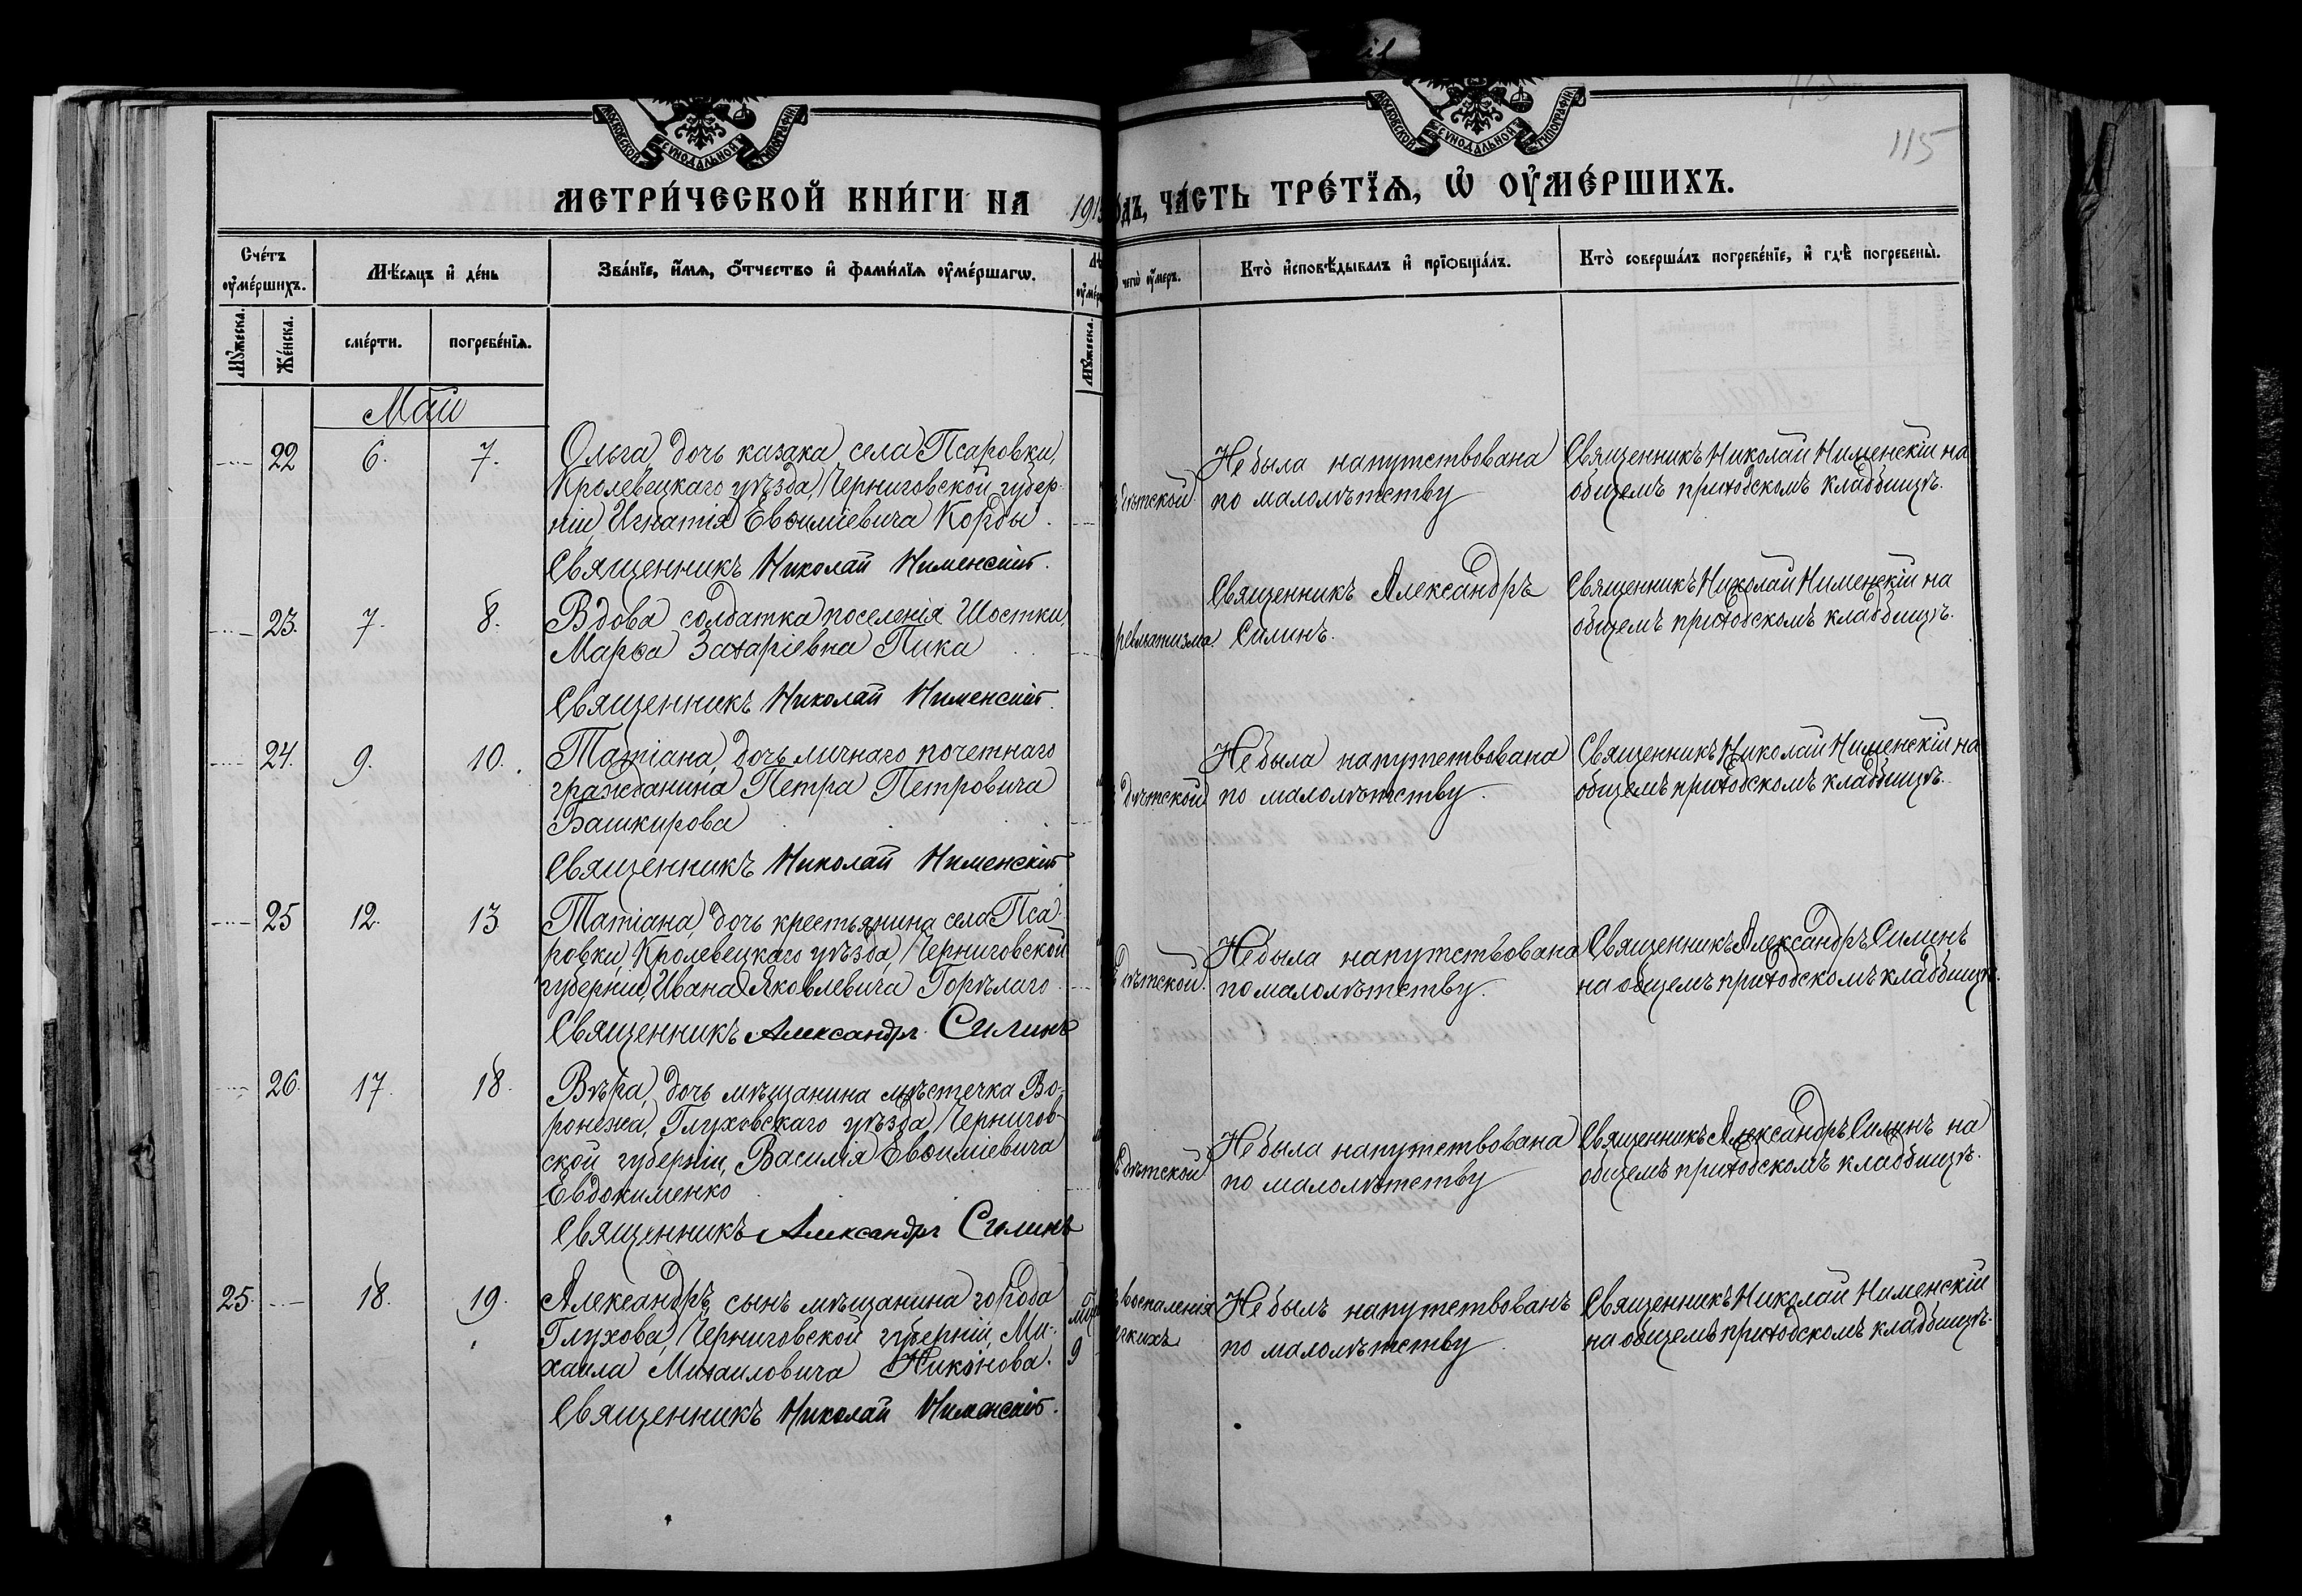 115
МОСКОВСКОЙ СѴНОДАЛЬНОЙ ТИПОГРАФІИ
МОСКОВСКОЙ СѴНОДАЛЬНОЙ ТИПОГРАФІИ
МЕТРИ́ЧЕСКОЙ КНИ́ГИ НА 191
ЧА́СТЬ ТРЕ́ТЇѦ, Ѡ҆ ОУ҆МЕ́РШИХЪ.
Сче́тъ оу҆ме́ршихъ.
Мѣ́сяцъ и҆ де́нь
Зва́нїе, и҆́мѧ, ѻ҆́тчество и҆ фами́лїѧ оу҆ме́ршагѡ.
чегѡ̀ оу҆́меръ.
Кто̀ и҆сповѣ́дывалъ и҆ прїѡбща́лъ.
Кто̀ соверша́лъ погребе́нїе, и҆ гдѣ̀ погребены̀.
Мꙋ́жеска.
Же́нска.
сме́рти.
погребе́нїѧ.
Мꙋ́жеска.
Май
22 6. 7. Ольга, дочь казака села Псаровки,
Кролевецкаго уѣзда, Черниговской губер-
ніи, Игнатія Евѳиміевича Корды.
Священникъ Николай Нименскій.
дѣтской
Не была напутствована
по малолѣтству
Священникъ Николай Нименскій на
общемъ приходскомъ кладбищѣ.
23. 7. 8. Вдова солдатка поселенія Шостки,
Марѳа Захаріевна Пика
Священникъ Николай Нименскій.
ревматизма.
Священникъ Александръ
Силинъ.
Священникъ Николай Нименскій на
общемъ приходскомъ кладбищѣ.
24. 9. 10. Татіана, дочь личнаго почетнаго
гражданина Петра Петровича
Башкирова
Священникъ Николай Нименскій
дѣтской
Не была напутствована
по малолѣтству.
Священникъ Николай Нименскій на
общемъ приходскомъ кладбищѣ.
25 12. 13 Татіана, дочь крестьянина села Пса-
ровки, Кролевецкаго уѣзда, Черниговской
губерніи, Ивана Яковлевича Горѣлаго
Священникъ Александръ Силинъ
дѣтской.
Не была напутствована
по малолѣтству.
Священникъ Александръ Силинъ
на общемъ приходскомъ кладбищѣ.
26. 17. 18. Вѣра, дочь мѣщанина мѣстечка Во-
ронежа, Глуховскаго уѣзда, Чернигов-
ской губерніи, Василія Евѳиміевича
Евдокименко
Священникъ Александръ Силинъ
дѣтской
Не была напутствована
по малолѣтству
Священникъ Александръ Силинъ на
общемъ приходскомъ кладбищѣ.
25. 18. 19. Александръ, сынъ мѣщанина города
Глухова, Черниговской губерніи, Ми-
хаила Михаиловича Никонова.
9
Священникъ Николай Нименскій.
воспаленія
гкихъ
Не былъ напутствованъ
по малолѣтству.
Священникъ Николай Нименскій
на общемъ приходскомъ кладбищѣ.